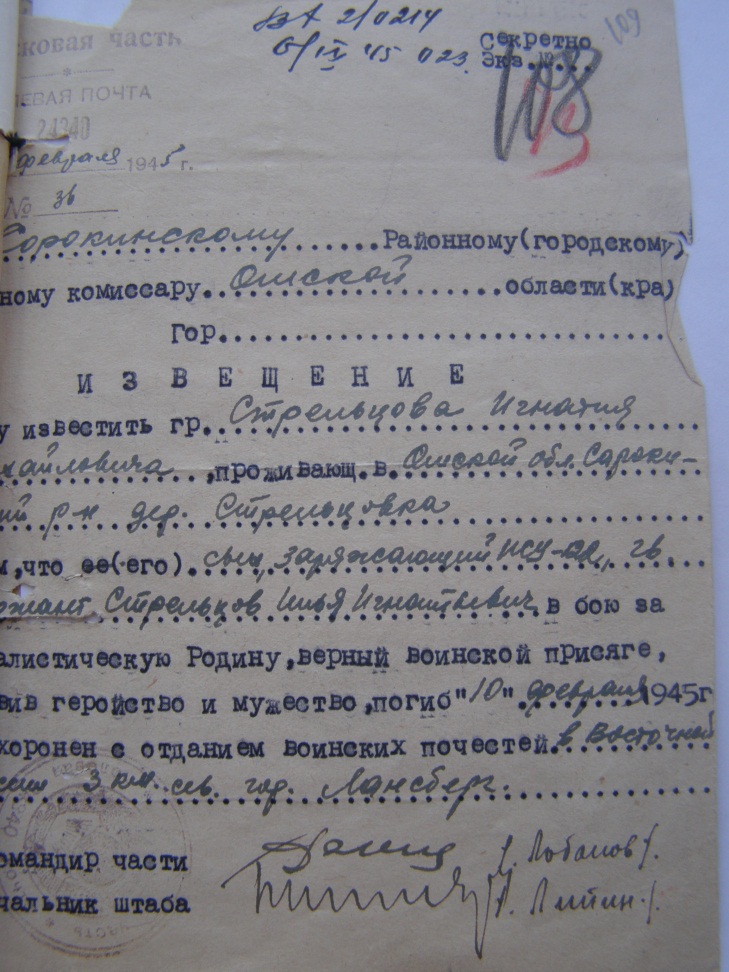 вх 2/0214
6/IX 45 023.
Секретно
109
Экз.№...
108
13
ковая часть
ЕВАЯ ПОЧТА
24340
февраля 1945 г.
№ 36
Сорокинскому Районному(городскому)
ному комиссару Омской области(кра)
Гор.
ИЗВЕЩЕНИЕ
у известить гр. Стрельцова Игнатия
хайловича ,проживающ.в. Омской обл. Сароки-
ий р-н дер. Стрельцовка
м,что ее(его) сын, заряжающий ИСУ-122, гв.
ржант Стрельцов Илья Игнатьевич в бою за
алистическую Родину,верный воинской присяге,
вив геройство и мужество,погиб "10" февраля 1945г
хоронен с отданием воинских почестей в Восточной
ссии 3 км. сев. гор. Лансберг.
омандир части /. Лобанов/.
чальник штаба